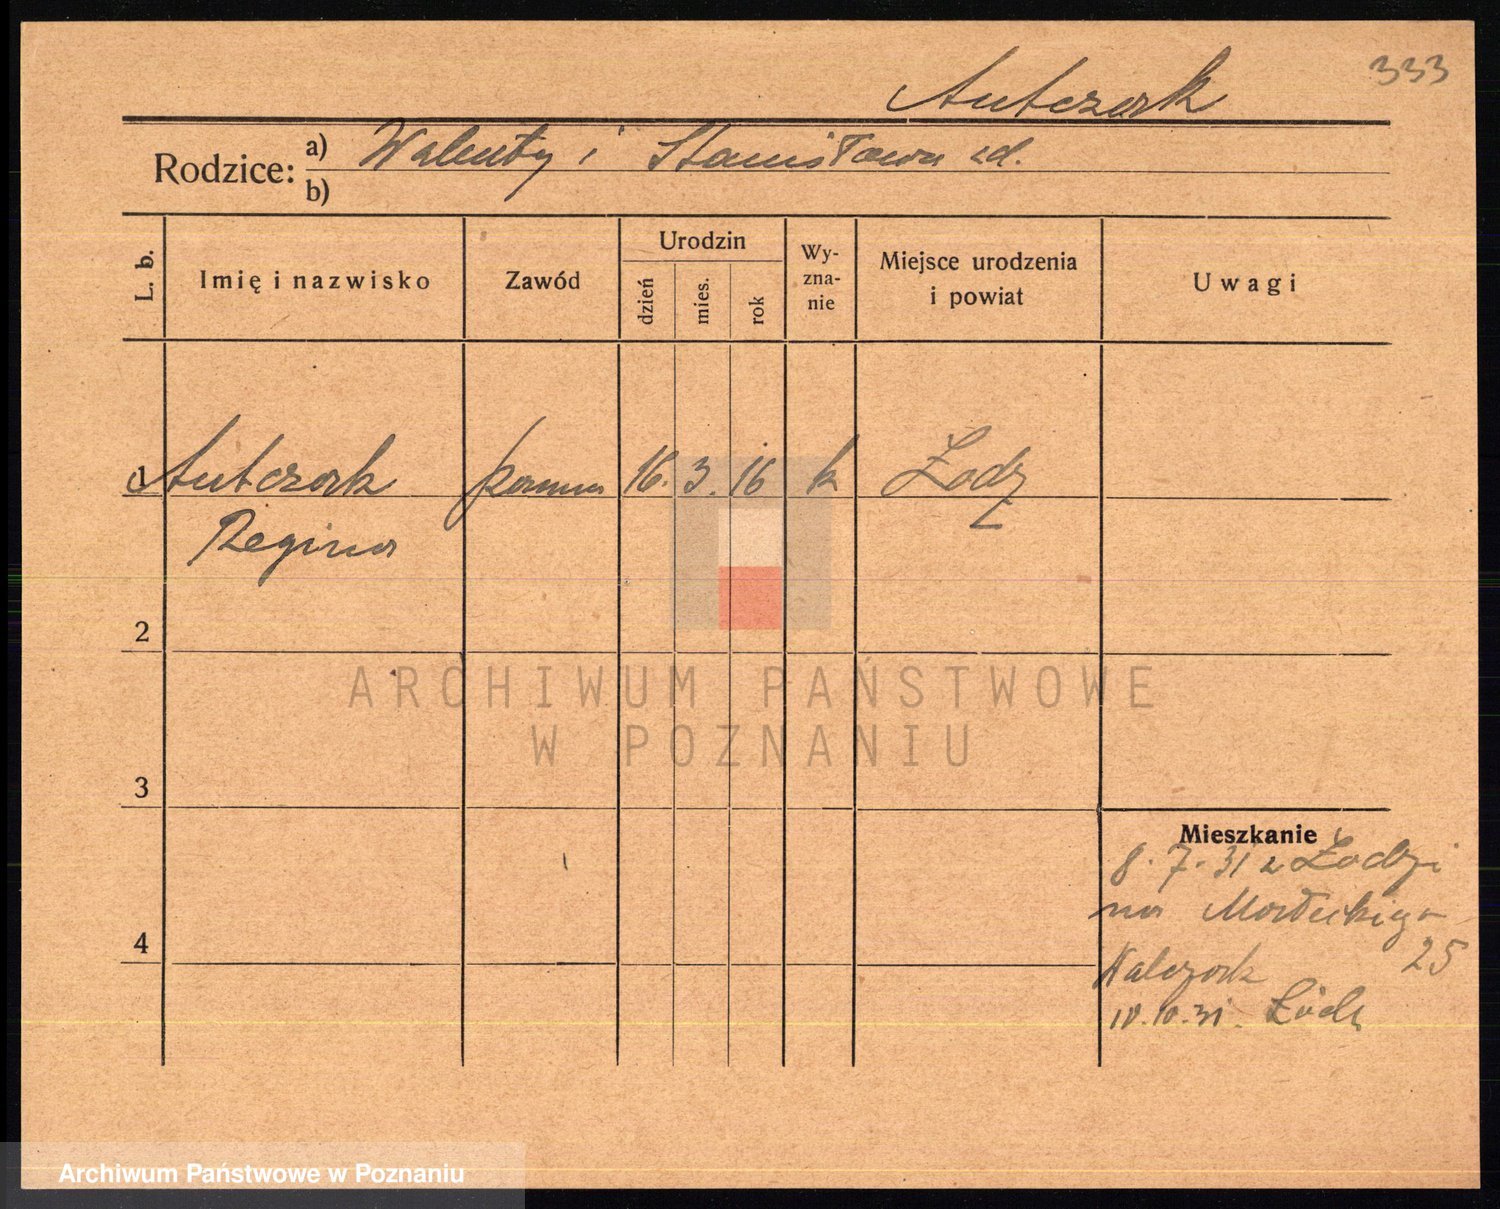 333
Antczak
Rodzice: a) Walenty i Stanisława zd.
b)
L. b.
Imię i nazwisko
Zawód
Urodzin
dzień
mies.
rok
Wy-
zna-
nie
Miejsce urodzenia
i powiat
Uwagi
1 Antczak panna 16. 3. 16 k Łodz
Regina
2
ARCHIWUM PAŃSTWOWE
W POZNANIU
3
Mieszkanie
8. 7. 31 z Łodzi
na
25
4
Walczak
10.31. Łódź
Archiwum Państwowe w Poznaniu